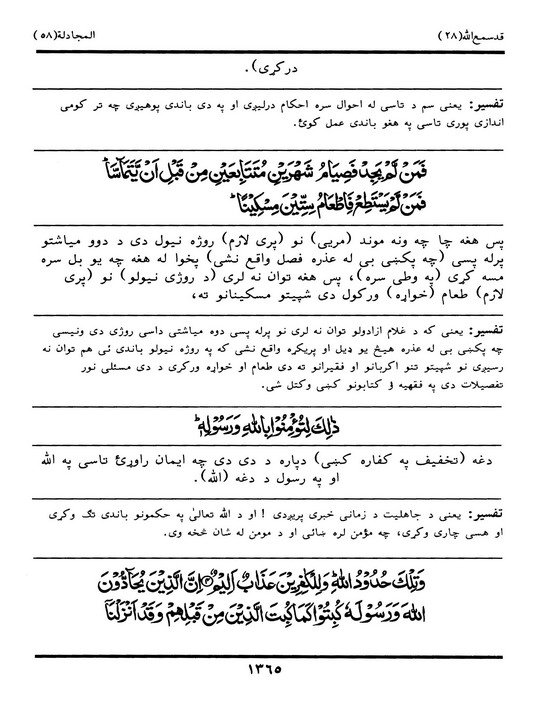 قدسمع الله (٢٨) المجادلة (٥٨)
درکړی).
تفسیر: یعنی سم د تاسی له احوال سره احکام درلیږی او په دی باندی پوهیږی چه تر کومی
اندازی پوری تاسی په هغو باندی عمل کوئ.
فَمَنْ لَّمْ يَجِدْ فَصِيَامُ شَهْرَيْنِ مُتَتَابِعَيْنِ مِنْ قَبْلِ اَنْ يَّتَمَآسَّا
فَمَنْ لَّمْ يَسْتَطِعْ فَاِطْعَامُ سِتِّيْنَ مِسْكِيْنًا ط
پس هغه چا چه ونه موند (مریی) نو (پری لازم) روژه نیول دی د دوو میاشتو
پرله پسی (چه پکښی بی له عذره فصل واقع نشی) پخوا له هغه چه یو بل سره
مسه کړی (په وطی سره)، پس هغه توان نه لری (د روژی نیولو) نو (پری
لازم) طعام (خواړه) ورکول دی شپیتو مسکینانو ته،
تفسیر: یعنی که د غلام ازادولو توان نه لری نو پرله پسی دوه میاشتی داسی روژی دی ونیسی
چه پکښی بی له عذره هیڅ یو ډیل او پریکړه واقع نشی که په روژه نیولو باندی ئی هم توان نه
رسیږی نو شپیتو تنو اکربانو او فقیرانو ته دی طعام او خواړه ورکړی د دی مسئلی نور
تفصیلات دی په فقهیه ؤ کتابونو کښی وکتل شی.
ذٰلِكَ لِتُؤْمِنُوْا بِاللّٰهِ وَرَسُوْلِهٖ ط
دغه (تخفیف په کفاره کښی) دپاره د دی دی چه ایمان راوړئ تاسی په الله
او په رسول د دغه (الله).
تفسیر: یعنی د جاهلیت د زمانی خبری پریږدی ! او د الله تعالیٰ په حکمونو باندی تګ وکړی
او هسی چاری وکړی، چه مؤمن لره ښائی او د مومن له شان څخه وی.
وَتِلْكَ حُدُوْدُ اللّٰهِ وَلِلْكٰفِرِيْنَ عَذَابٌ اَلِيْمٌ ۝ اِنَّ الَّذِيْنَ يُحَآدُّوْنَ
اللّٰهَ وَرَسُوْلَهٗ كُبِتُوْا كَمَا كُبِتَ الَّذِيْنَ مِنْ قَبْلِهِمْ وَقَدْ اَنْزَلْنَآ
١٣٦٥